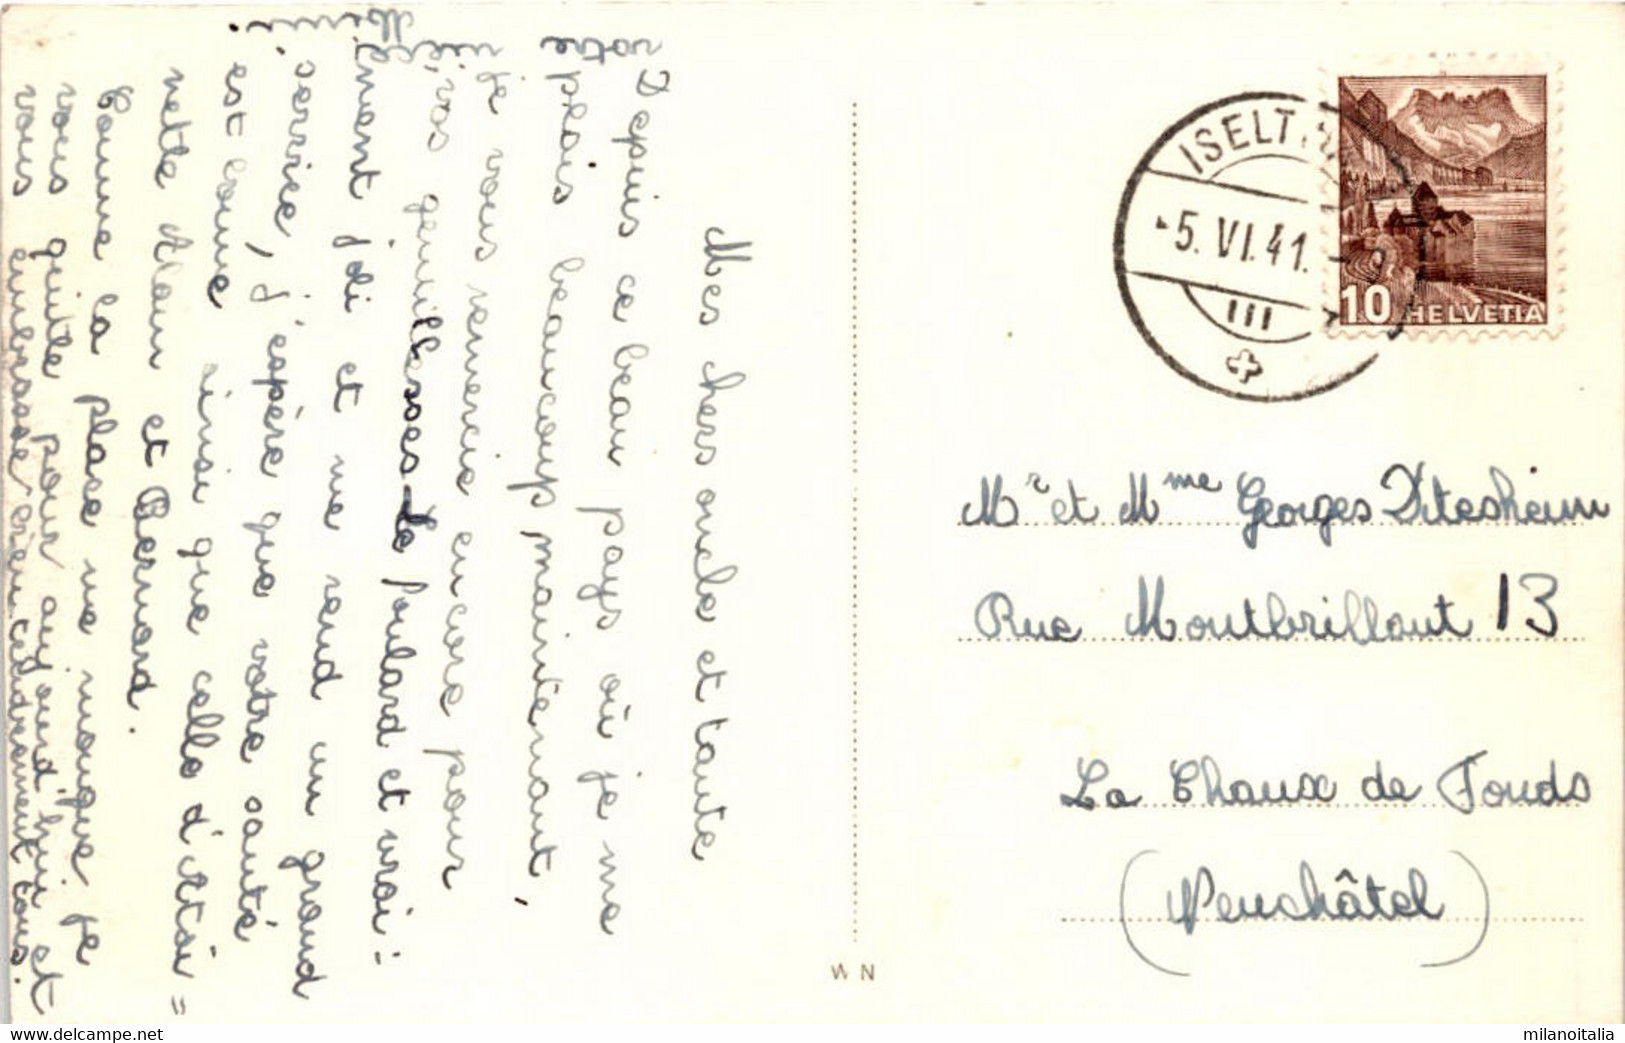 Mes chers oncle et tante
Depuis ce beau pays où je me
plais beaucoup maintenant,
je vous remercie encore pour
vos gentillesses. Le foulard est vrai-
ment joli et me rend un grand
service, j'espère que votre santé
est bonne ainsi que celle d'Antoi=
nette Alain et Bernard.
Comme la place me manque je
vous quitte pour aujourd'hui et
vous embrasse bien tendrement tous.
votre nièce
Mimi.
ISELT
-5. VI. 41.
III
10 HELVETIA
Mr et Mme Georges Ditesheim
Rue Montbrillant 13
La Chaux de Fonds
(Neuchâtel)
WN
https://www.delcampe.net
milanoitalia